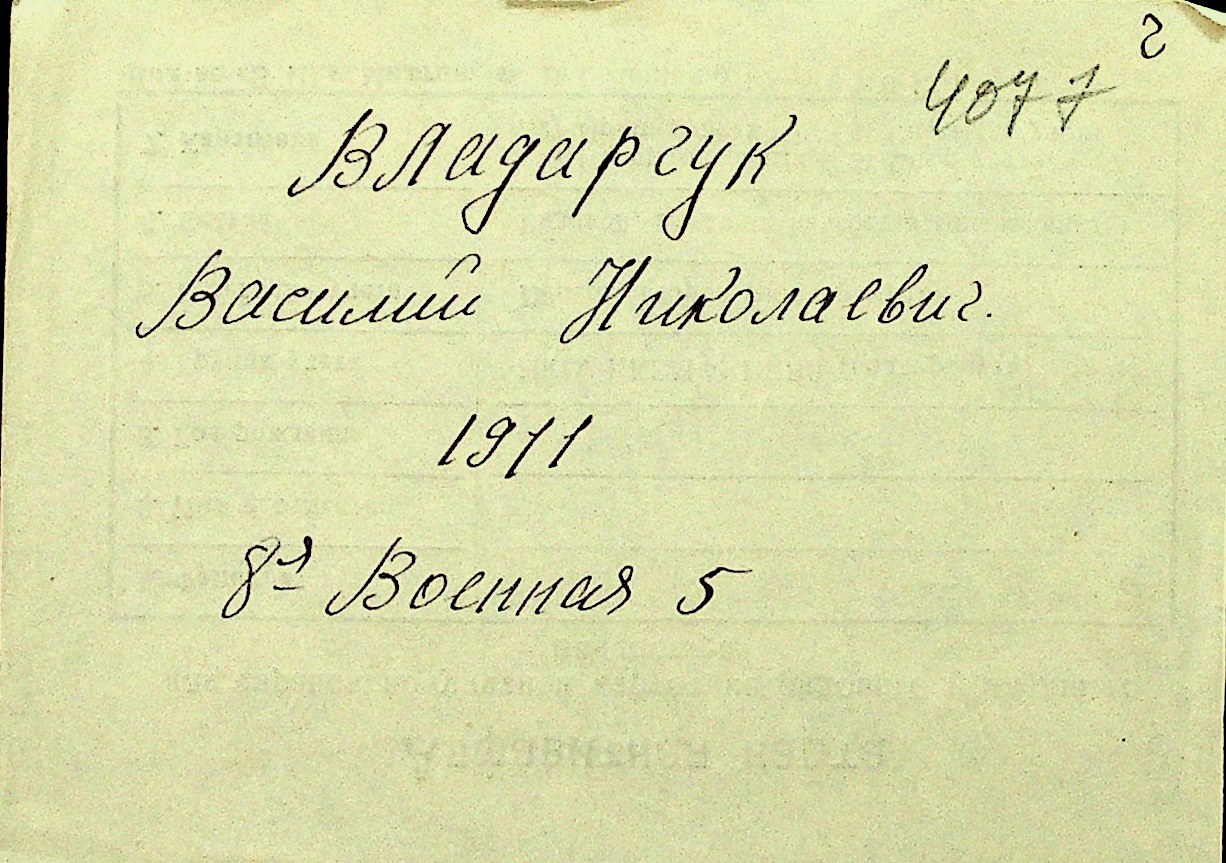 г
4077
Владарчук
Василий Николаевич.
1911
8я Военная 5